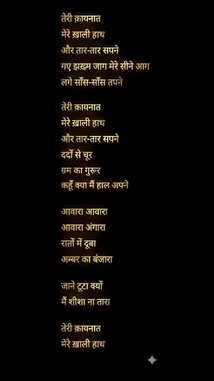 तेरी क़ायनात
मेरे ख़ाली हाथ
और तार-तार सपने
गए झख़्म जाग मेरे सीने आग
लगे साँस-साँस तपने
तेरी क़ायनात
मेरे ख़ाली हाथ
और तार-तार सपने
दर्दों से चूर
ग़म का गुरूर
कहूँ क्या मैं हाल अपने
आवारा आवारा
आवारा अंगारा
रातों में डूबा
अम्बर का बंजारा
जाने टूटा क्यों
मैं शीशा ना तारा
तेरी क़ायनात
मेरे ख़ाली हाथ